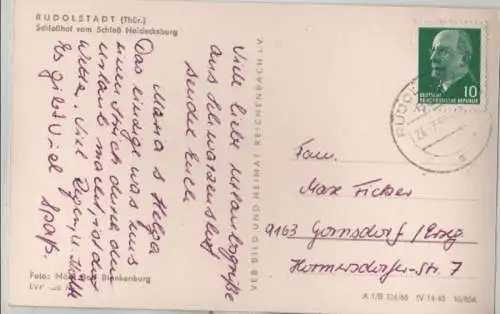 RUDOLSTADT (Thür.)
Schloßhof vom Schloß Heidecksburg
Viele liebe Urlaubsgrüße
aus Schwarzenshof
sendet Euch
Maria & Helga
Das einzige was uns
einen Strich durch den
Urlaub macht, ist das
Wetter. Viel Regen, Kälte
Es gibt viel Spaß.
Foto: Blankenburg
VEB BILD UND HEIMAT REICHENBACH i. V.
10
DEUTSCHE
DEMOKRATISCHE REPUBLIK
RUDOL
Fam.
Max Ficker
9163 Gornsdorf/Erzg.
Hormersdorfer-Str. 7
A 1/B 324/68 IV-14-45 10/85A